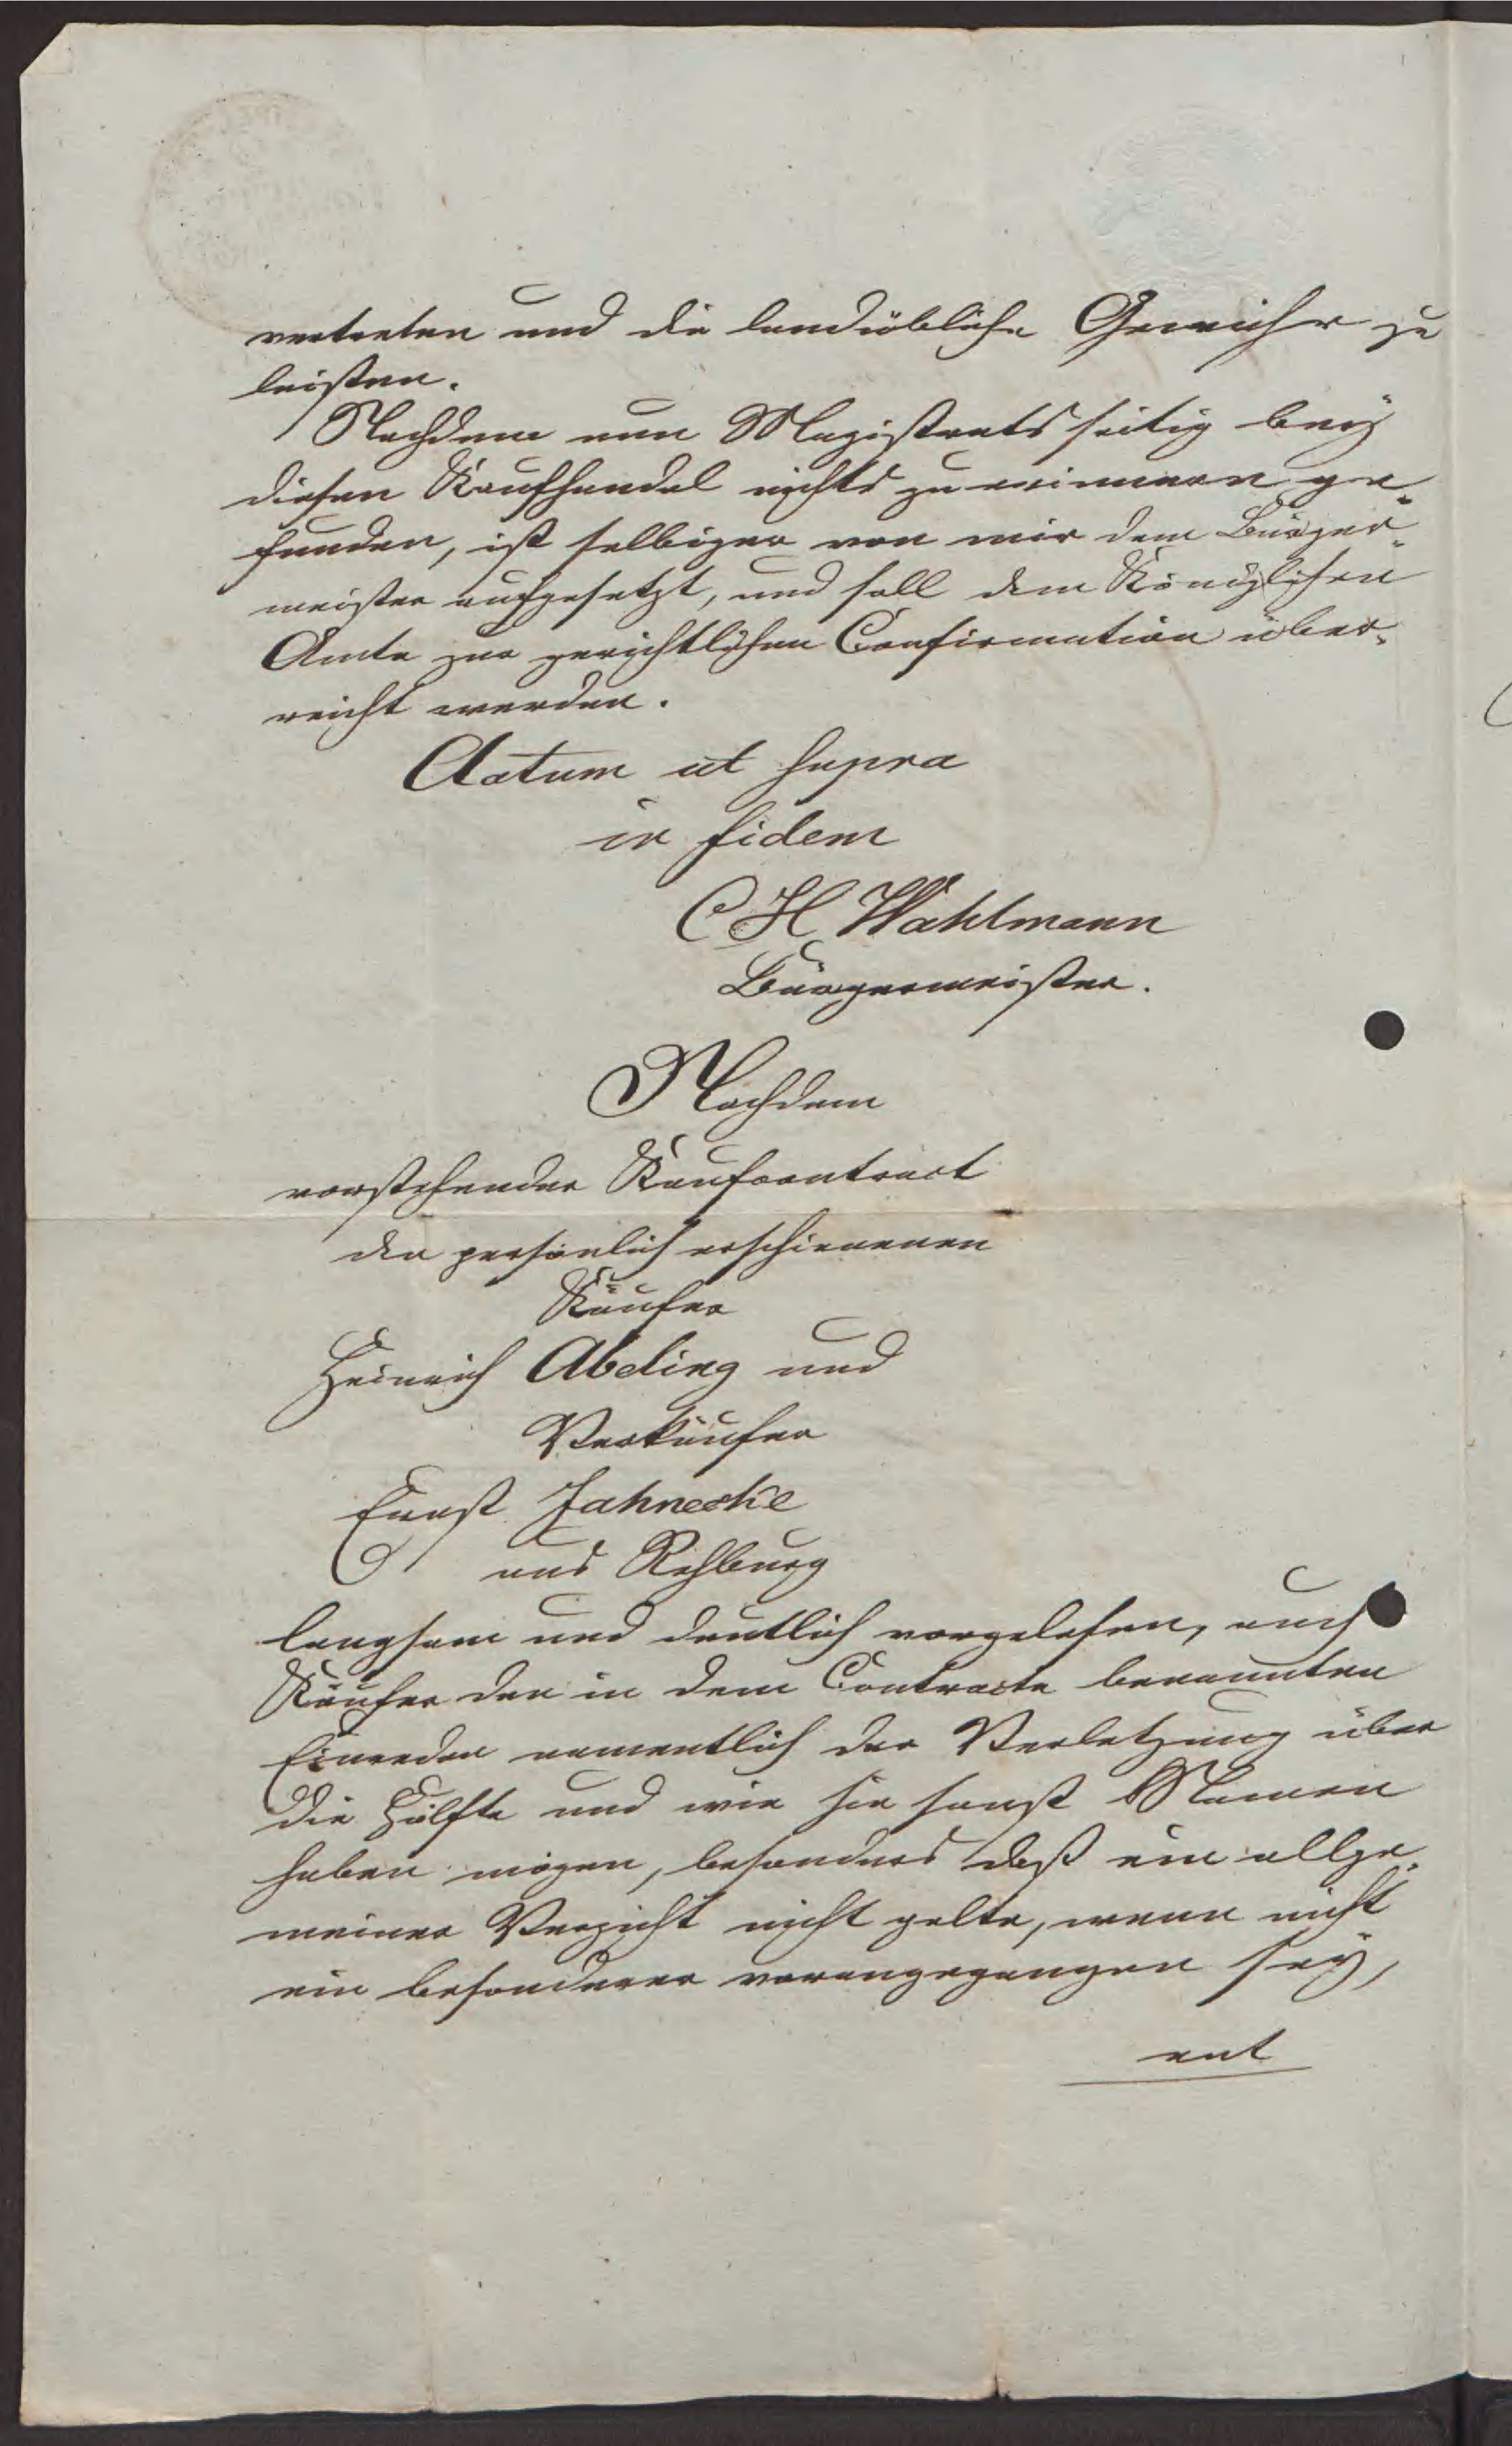 vertreten und die landübliche Gewähr zu
leisten.
Nachdem nun Magistratsseitig bey
diesen Kaufhandel nichts zu erinnern ge-
funden, ist selbiger von mir dem Bürger-
meister aufgesetzt, und soll dem Königlichen
Amte zur gerichtlichen Confirmation über-
reicht werden.
Actum ut supra
in fidem
C H Wahlmann
Bürgermeister.
Nachdem
vorstehender Kaufcontract
den persönlich erschienenen
Käufer
Heinrich Abeling und
Verkäufer
Ernst Jahnecke
aus Rehburg
langsam und deutlich vorgelesen, auch
Käufer der in dem Contracte benannten
Einreden namentlich der Verletzung über
die Hälfte und wie sie sonst Namen
haben mögen, besonders daß ein allge-
meiner Verzicht nicht gelte, wenn nicht
ein besonderer vorangegangen sey,
ent